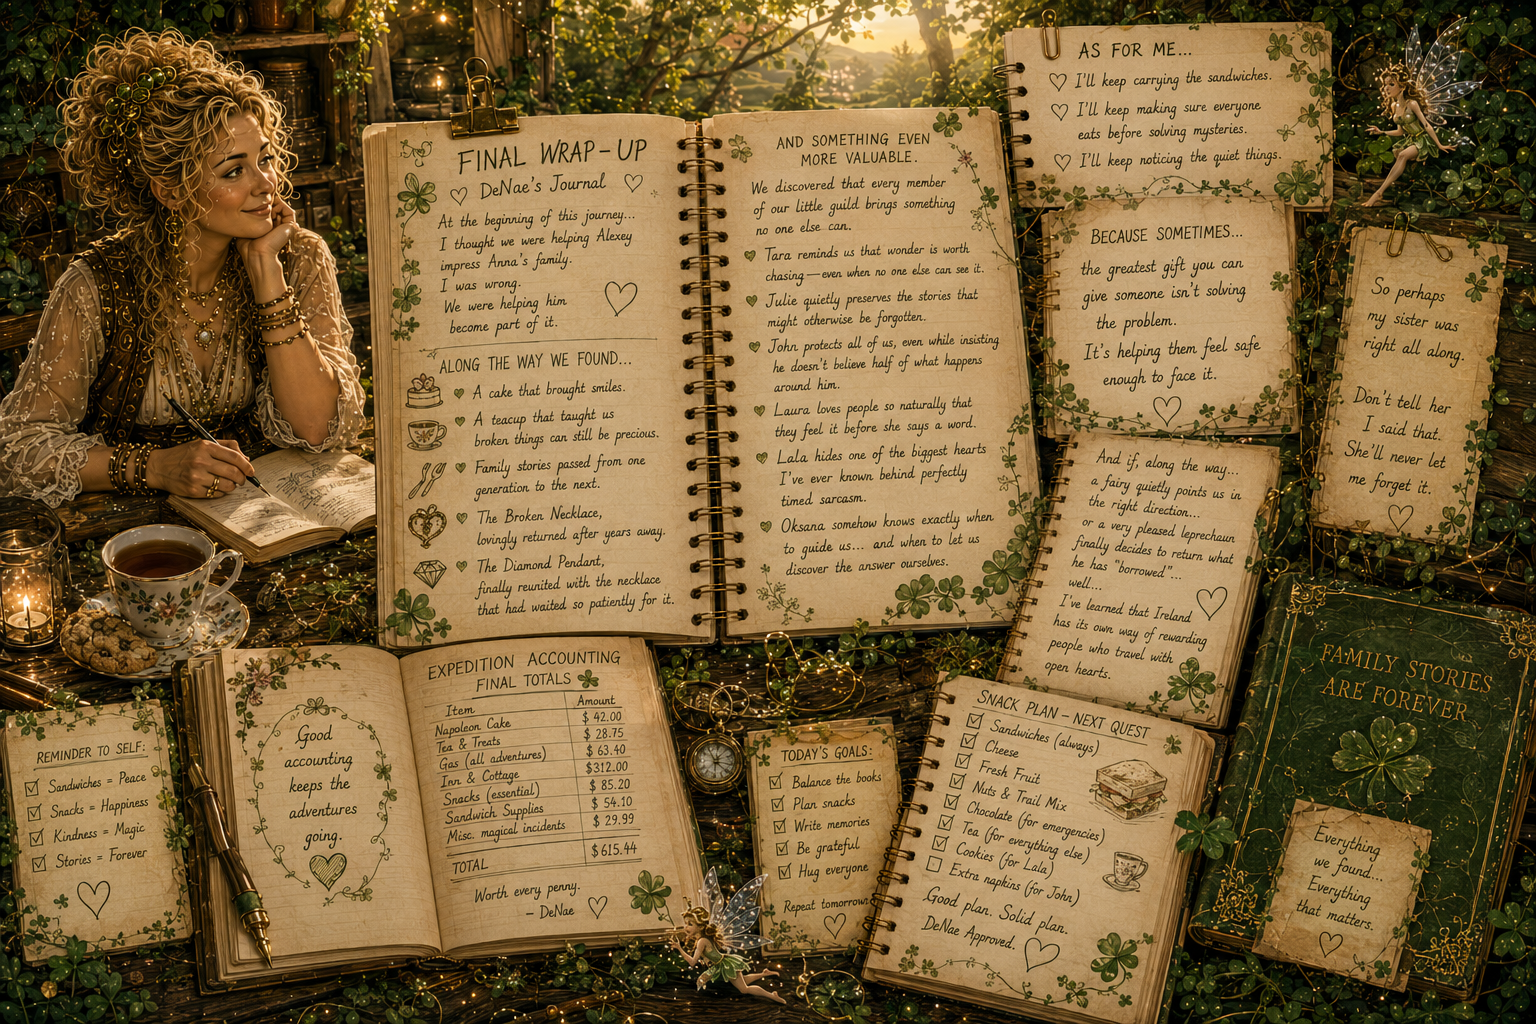 FINAL WRAP-UP
DeNae's Journal
At the beginning of this journey...
I thought we were helping Alexey
impress Anna's family.
I was wrong.
We were helping him
become part of it.
ALONG THE WAY WE FOUND...
A cake that brought smiles.
A teacup that taught us
broken things can still be precious.
Family stories passed from one
generation to the next.
The Broken Necklace,
lovingly returned after years away.
The Diamond Pendant,
finally reunited with the necklace
that had waited so patiently for it.
AND SOMETHING EVEN
MORE VALUABLE.
We discovered that every member
of our little guild brings something
no one else can.
Tara reminds us that wonder is worth
chasing—even when no one else can see it.
Julie quietly preserves the stories that
might otherwise be forgotten.
John protects all of us, even while insisting
he doesn't believe half of what happens
around him.
Laura loves people so naturally that
they feel it before she says a word.
Lala hides one of the biggest hearts
I've ever known behind perfectly
timed sarcasm.
Oksana somehow knows exactly when
to guide us... and when to let us
discover the answer ourselves.
AS FOR ME...
I'll keep carrying the sandwiches.
I'll keep making sure everyone
eats before solving mysteries.
I'll keep noticing the quiet things.
BECAUSE SOMETIMES...
the greatest gift you can
give someone isn't solving
the problem.
It's helping them feel safe
enough to face it.
So perhaps
my sister was
right all along.
Don't tell her
I said that.
She'll never let
me forget it.
And if, along the way...
a fairy quietly points us in
the right direction...
or a very pleased leprechaun
finally decides to return what
he has "borrowed"...
well...
I've learned that Ireland
has its own way of rewarding
people who travel with
open hearts.
REMINDER TO SELF:
Sandwiches = Peace
Snacks = Happiness
Kindness = Magic
Stories = Forever
Good
accounting
keeps the
adventures
going.
EXPEDITION ACCOUNTING
FINAL TOTALS
Item Amount
Napoleon Cake $ 42.00
Tea & Treats $ 28.75
Gas (all adventures) $ 63.40
Inn & Cottage $312.00
Snacks (essential) $ 85.20
Sandwich Supplies $ 54.10
Misc. magical incidents $ 29.99
TOTAL $615.44
Worth every penny.
– DeNae
TODAY'S GOALS:
Balance the books
Plan snacks
Write memories
Be grateful
Hug everyone
Repeat tomorrow.
SNACK PLAN – NEXT QUEST
Sandwiches (always)
Cheese
Fresh Fruit
Nuts & Trail Mix
Chocolate (for emergencies)
Tea (for everything else)
Cookies (for Lala)
Extra napkins (for John)
Good plan. Solid plan.
DeNae Approved.
FAMILY STORIES
ARE FOREVER
Everything
we found...
Everything
that matters.